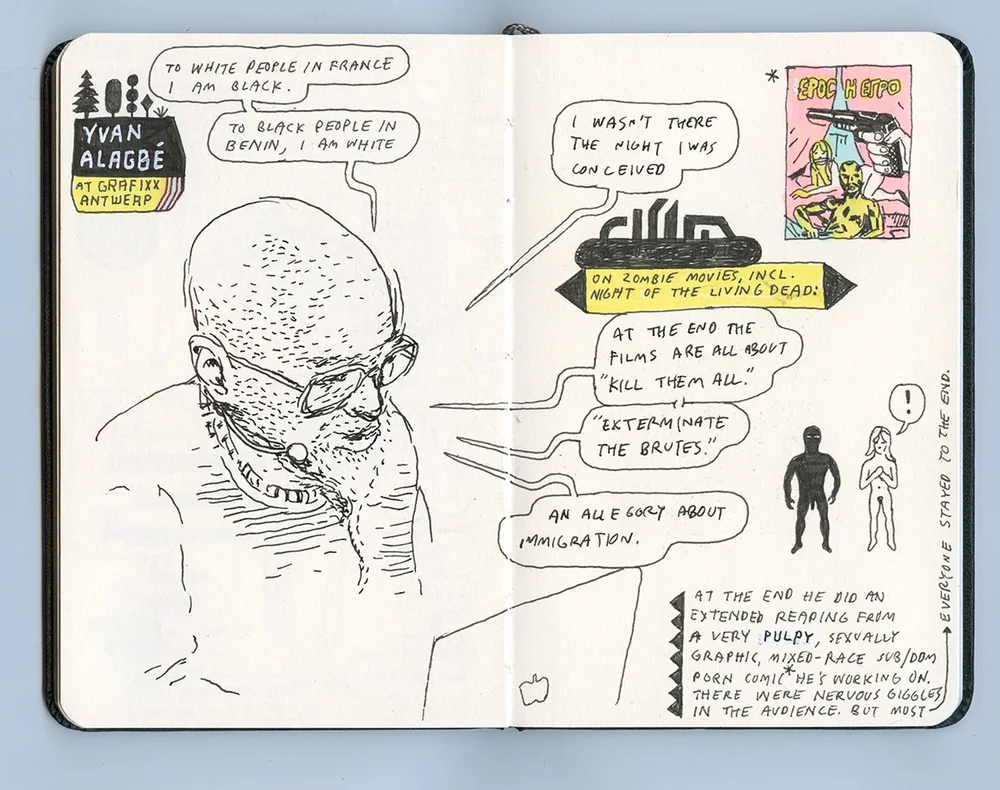 TO WHITE PEOPLE IN FRANCE
I AM BLACK.
TO BLACK PEOPLE IN
BENIN, I AM WHITE
YVAN
ALAGBÉ
AT GRAFIXX
ANTWERP
I WASN'T THERE
THE NIGHT I WAS
CONCEIVED
*
ON ZOMBIE MOVIES, INCL.
NIGHT OF THE LIVING DEAD:
AT THE END THE
FILMS ARE ALL ABOUT
"KILL THEM ALL."
"EXTERMINATE
THE BRUTES."
AN ALLEGORY ABOUT
IMMIGRATION.
!
AT THE END HE DID AN
EXTENDED READING FROM
A VERY PULPY, SEXUALLY
GRAPHIC, MIXED-RACE SUB/DOM
PORN COMIC* HE'S WORKING ON.
THERE WERE NERVOUS GIGGLES
IN THE AUDIENCE. BUT MOST
EVERYONE STAYED TO THE END.